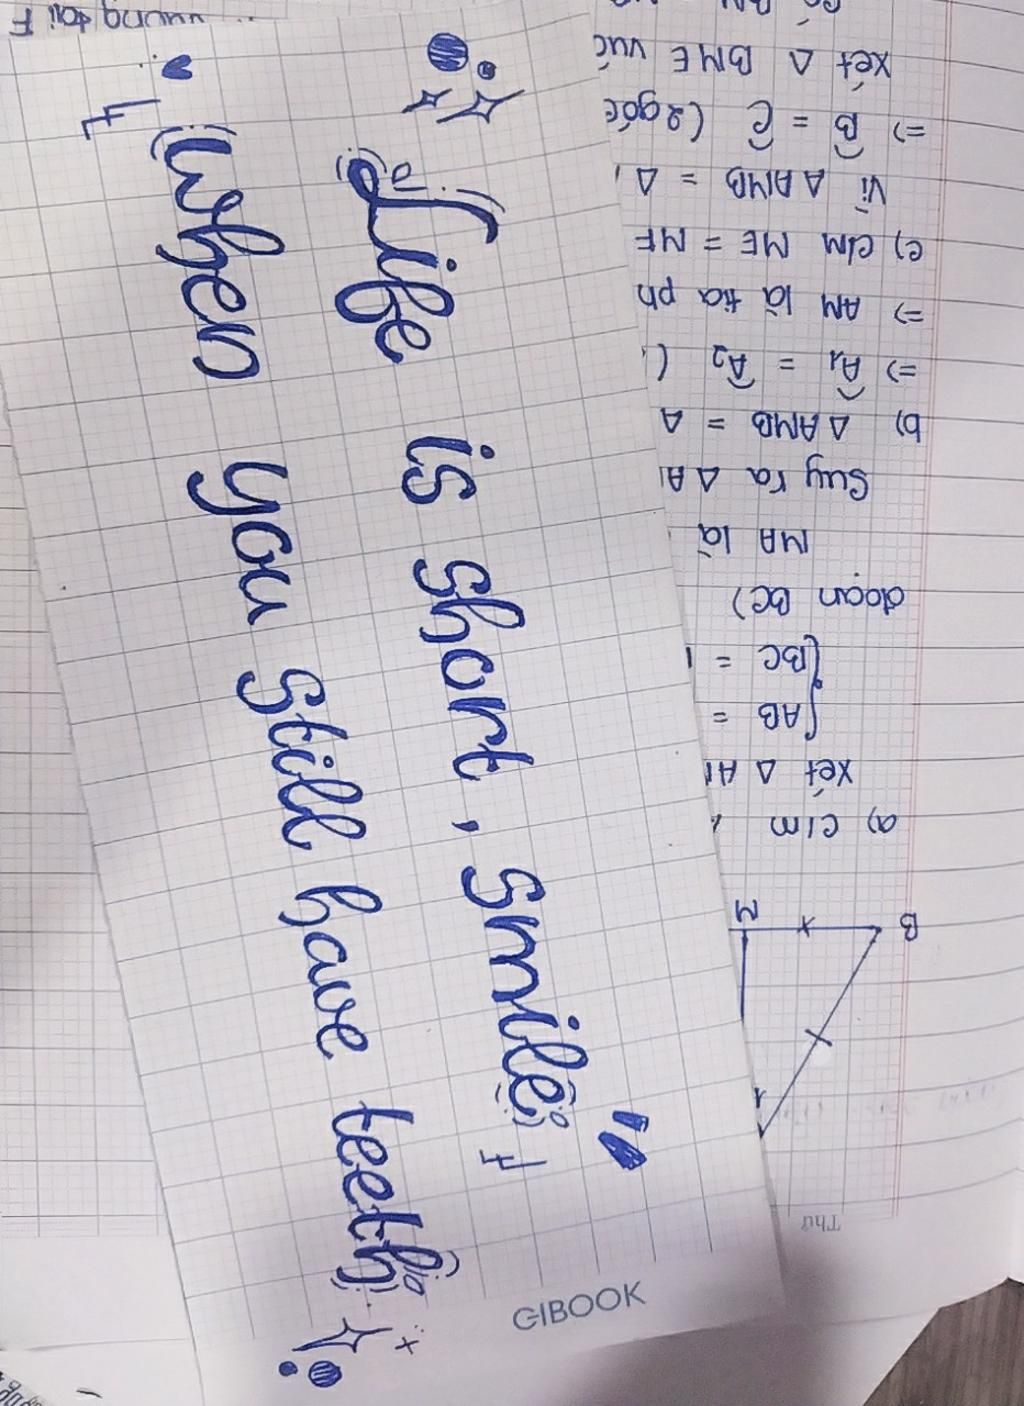 Life is short, smile
When you still have teeth
GIBOOK
Thứ
B
M
1
a) c/m
Xét Δ
{AB =
{BC =
đoạn BC)
MA là
Suy ra Δ
b) Δ AMB = Δ
=> Â1 = Â2 (
=> AM là tia ph
c) c/m ME = MF
Vì Δ AMB = Δ
=> B̂ = Ĉ (2 góc
Xét Δ BME vuô
vuông tại F